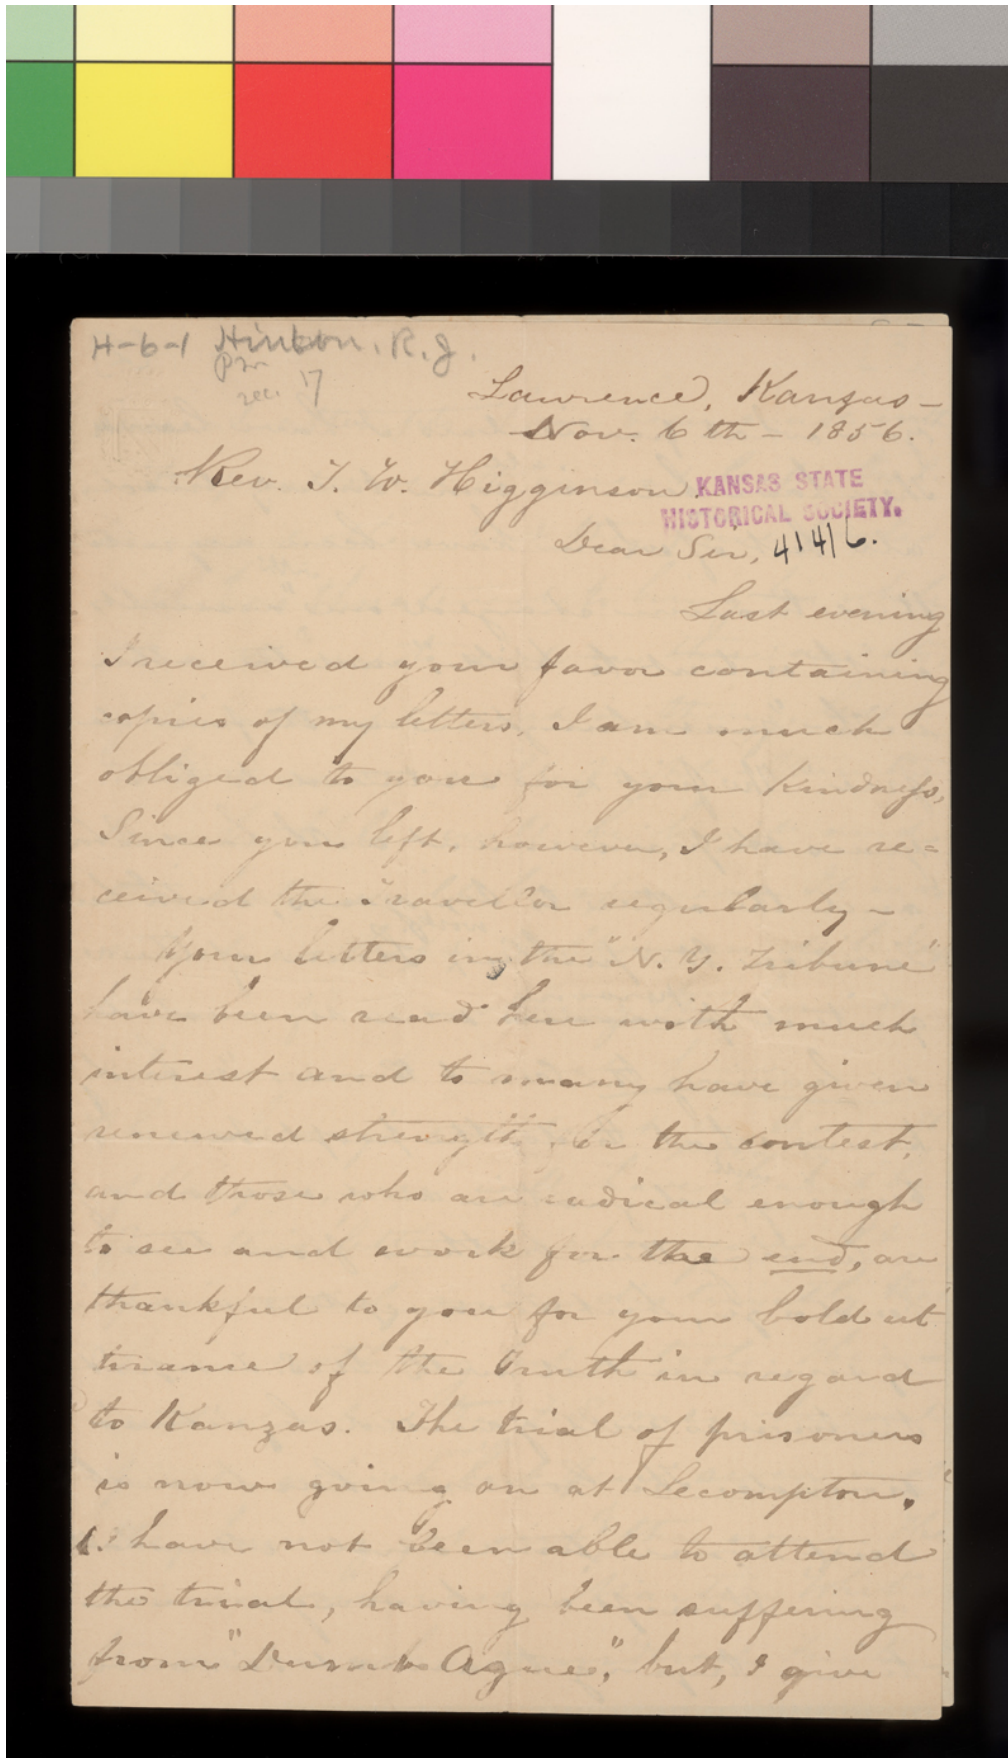 H-6-1 Hinton, R.J.
rec. 17
Lawrence, Kanzas –
Nov. 6th – 1856.
Rev. T. W. Higginson.
KANSAS STATE
HISTORICAL SOCIETY.
Dear Sir, 41416.
Last evening
I received your favor containing
copies of my letters. I am much
obliged to you for your kindness,
Since you left, however, I have re=
ceived the Traveller regularly –
Your letters in the "N. Y. Tribune"
have been read here with much
interest and to many have given
renewed strength for the contest,
and those who are radical enough
to see and work for the end, are
thankful to you for your bold ut
terance of the truth in regard
to Kanzas. The trial of prisoners
is now going on at Lecompton.
I have not been able to attend
the trial, having been suffering
from "Dumb Ague", but, I give